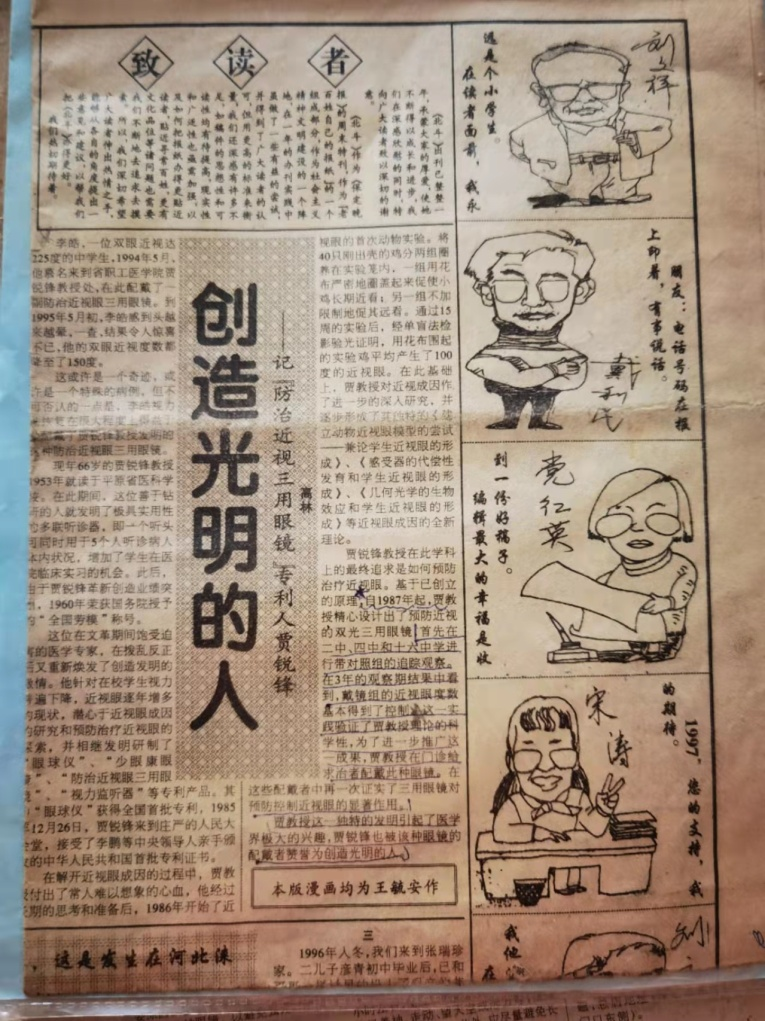 致读者
《北斗》出刊已整整一
年，承蒙大家的厚爱，使她
不断得以成长和进步，我
们在深感欣慰的同时，特
向广大读者致以深切的谢
意。
《北斗》作为《保定晚
报》的周末特刊，作为《老
百姓自己的报纸》的一个
组成部分，作为社会主义
精神文明建设的一个阵
地，在一年的办刊实践中
虽做了一些有益的尝试，
并得到了广大读者的认
可，但用更高的标准来衡
量，我们还深感有许多不
足，如稿件的思想性和可
读性均有待提高，现实性
和广泛性也亟需加强，以
及如何把报纸办得更贴近
读者，贴近寻常百姓，更有
文化品位等诸问题也需要
我们不断地去追求去摸
索。所以，我们深切希望
广大读者伸出热情之手，
能够从各自的角度提出一
些意见和建议，以帮我们
把《北斗》办得更好。
我们热切期待着。
创造光明的人
——记『防治近视三用眼镜』专利人贾锐锋
高林
李皓、一位双眼近视达
225度的中学生，1994年5月，
他慕名来到省职工医学院贾
锐锋教授处，在此配戴了一
副防治近视眼三用眼镜。到
1995年5月初，李皓感到头越
来越晕，一查，结果令人惊喜
不已，他的双眼近视度数都
降至了150度。
这或许是一个奇迹，或
许是一个特殊的病例，但不
可否认的一点是，李皓视力
贾锐锋教授发明的
这种防治近视眼三用眼镜。
现年66岁的贾锐锋教授
1953年就读于平原省医科学
校。在此期间，这位善于钻
研的人就发明了极具实用性
的多联听诊器，即一个听头
可同时用于5个人听诊病人
体内状况，增加了学生在医
院临床实习的机会。此后，
由于贾锐锋革新创造业绩突
出，1960年荣获国务院授予
的“全国劳模”称号。
这位在文革期间饱受迫
害的医学专家，在拨乱反正
后又重新焕发了创造发明的
激情。他针对在校学生视力
普遍下降，近视眼逐年增多
的现状，潜心于近视眼成因
的研究和预防治疗近视眼的
探索，并相继发明研制了
“眼球仪”、“少眼康眼
镜”、“防治近视眼三用眼
镜”、“视力监听器”等专利产品。其
中“眼球仪”获得全国首批专利，1985
年12月26日，贾锐锋来到庄严的人民大
会堂，接受了李鹏等中央领导人亲手颁
发的中华人民共和国首批专利证书。
在解开近视眼成因的过程中，贾教
授付出了常人难以想象的心血，他经过
长期的思考和准备后，1986年开始了近
视眼的首次动物实验。将
40只刚出壳的鸡分两组圈
养在实验笼内，一组用花
布严密地圈盖起来促使小
鸡长期近看；另一组不加
限制地促其远看。通过15
周的实验后，经单盲法检
影验光证明，用花布围起
的实验鸡平均产生了100
度的近视眼。在此基础
上，贾教授对近视成因作
了进一步的深入研究，并
逐步形成了其独特的《建
立动物近视眼模型的尝试
—兼论学生近视眼的形
成》、《感受器的代偿性
发育和学生近视眼的形
成》、《几何光学的生物
效应和学生近视眼的形
成》等近视眼成因的全新
理论。
贾锐锋教授在此学科
上的最终追求是如何预防
治疗近视眼。基于已创立
的原理，自1987年起，贾教
授精心设计出了预防近视
的双光三用眼镜，首先在
二中、四中和十六中学进
行带对照组的追踪观察。
在3年的观察期结果中看
到，戴镜组的近视眼度数
基本得到了控制，这一实
践验证了贾教授理论的科
学性，为了进一步推广这
一成果，贾教授在门诊给
求治者配戴此种眼镜。在
这些配戴者中再一次证实了三用眼镜对
预防控制近视的显著作用。
贾教授这一独特的发明引起了医学
界极大的兴趣，贾锐锋也被这种眼镜的
配戴者赞誉为创造光明的人。
本版漫画均为王毓安作
刘文祥
在读者面前，我永
远是个小学生。
朋友：电话号码在报
上印着，有事说话。
戴利民
党红英
编辑最大的幸福是收
到一份好稿子。
宋涛
1997，您的支持，我
的期待。
，这是发生在河北涞
三
1996年人冬，我们来到张瑞珍
家。二儿子彦青初中毕业后，已和